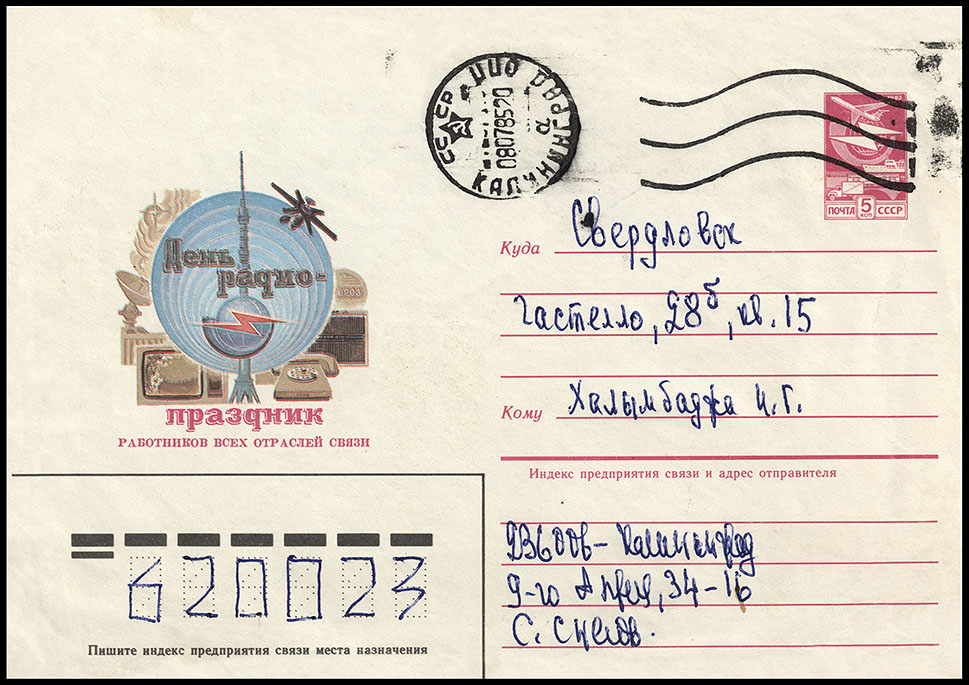 СССР КАЛИНИНГРАД ППО
08078520
ПОЧТА 5 КОП СССР
День
радио-
праздник
РАБОТНИКОВ ВСЕХ ОТРАСЛЕЙ СВЯЗИ
Куда Свердловск
Гастелло, 28б, кв. 15
Кому Халымбаджа И.Г.
Индекс предприятия связи и адрес отправителя
236006 - Калининград
9-го Апреля, 34-16
С. Снегов.
620023
Пишите индекс предприятия связи места назначения